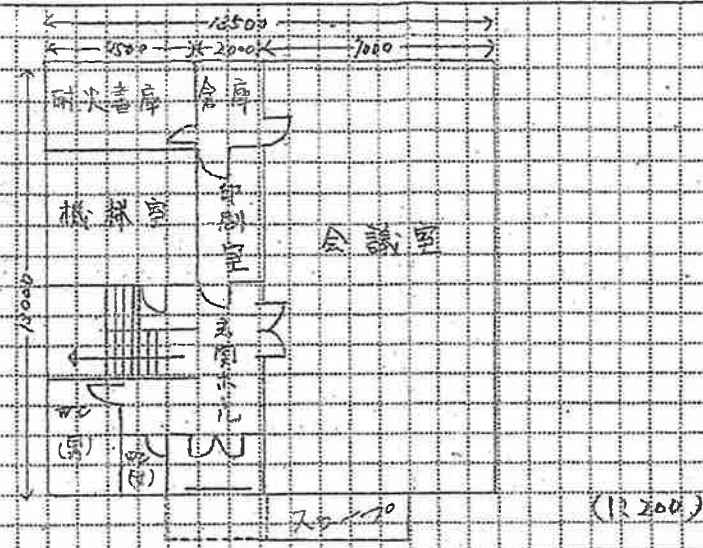 13500
4500
2000
7000
耐火書庫
倉庫
機械室
印刷室
会議室
13000
玄関ホール
WC
(男)
(女)
スロープ
(1:200)